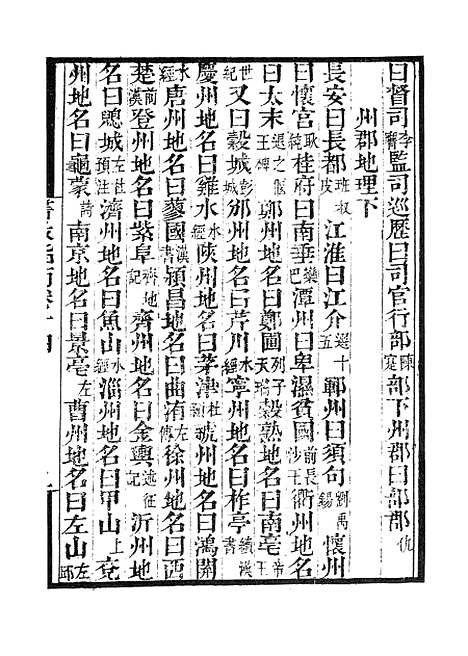 曰督司李鄘監司巡歷曰司官行部陳寔部下州郡曰部郡仇
州郡地理下
長安曰長都班叔皮江淮曰江介選十五鄆州曰須句劉禹錫懷州
曰懷宮耿純桂府曰南垂欒巴潭州曰卑濕貧國前長沙王衢州地名
曰太末退之偃王碑鄭州地名曰鄭圃列子天瑞穀熟地名曰南亳帝王
世紀又曰穀城彭城邠州地名曰芹川水經寧州地名曰柞亭續漢書
慶州地名曰雞水水經陝州地名曰茅津杜預虢州地名曰鴻關
水經唐州地名曰蓼國漢書潁昌地名曰曲洧左傳徐州地名曰西
楚前漢登州地名曰紫阜齊地記齊州地名曰金輿述征記沂州地
名曰鄫城左杜預注濟州地名曰魚山水經淄州地名曰甲山上兗
州地名曰龜蒙詩南京地名曰景亳左曹州地名曰左山左邱